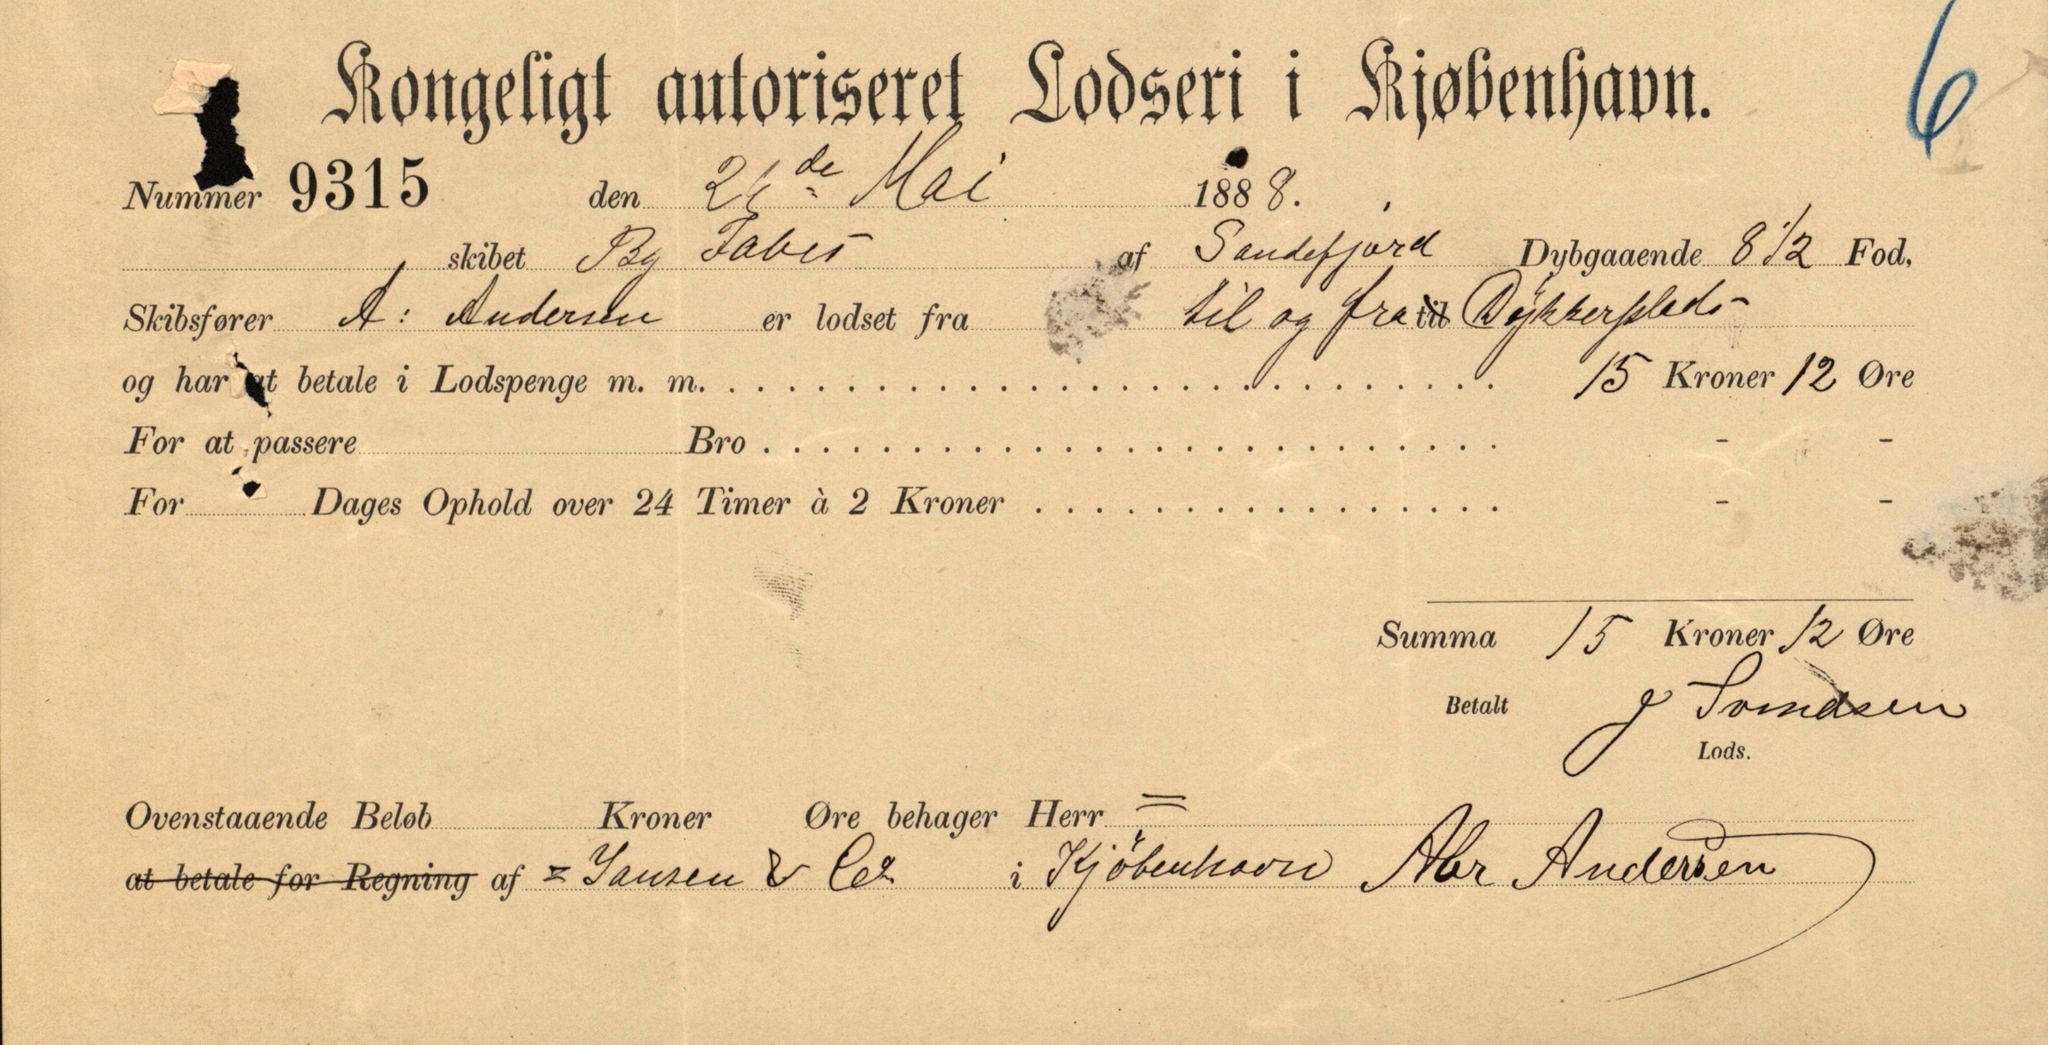 6
Kongeligt autoriseret Lodseri i Kjøbenhavn.
Nummer 9315 den 21de Mai 1888.
skibet Bg Tabes af Sandefjord Dybgaaende 8 1/2 Fod,
Skibsfører A: Andersen er lodset fra til og fra til Dykkerplads
og har at betale i Lodspenge m. m. 15 Kroner 12 Øre
For at passere Bro - -
For Dages Ophold over 24 Timer à 2 Kroner - -
Summa 15 Kroner 12 Øre
Betalt J Svendsen
Lods.
Ovenstaaende Beløb Kroner Øre behager Herr =
at betale for Regning af = Jansen & Co i Kjøbenhavn Abr Andersen